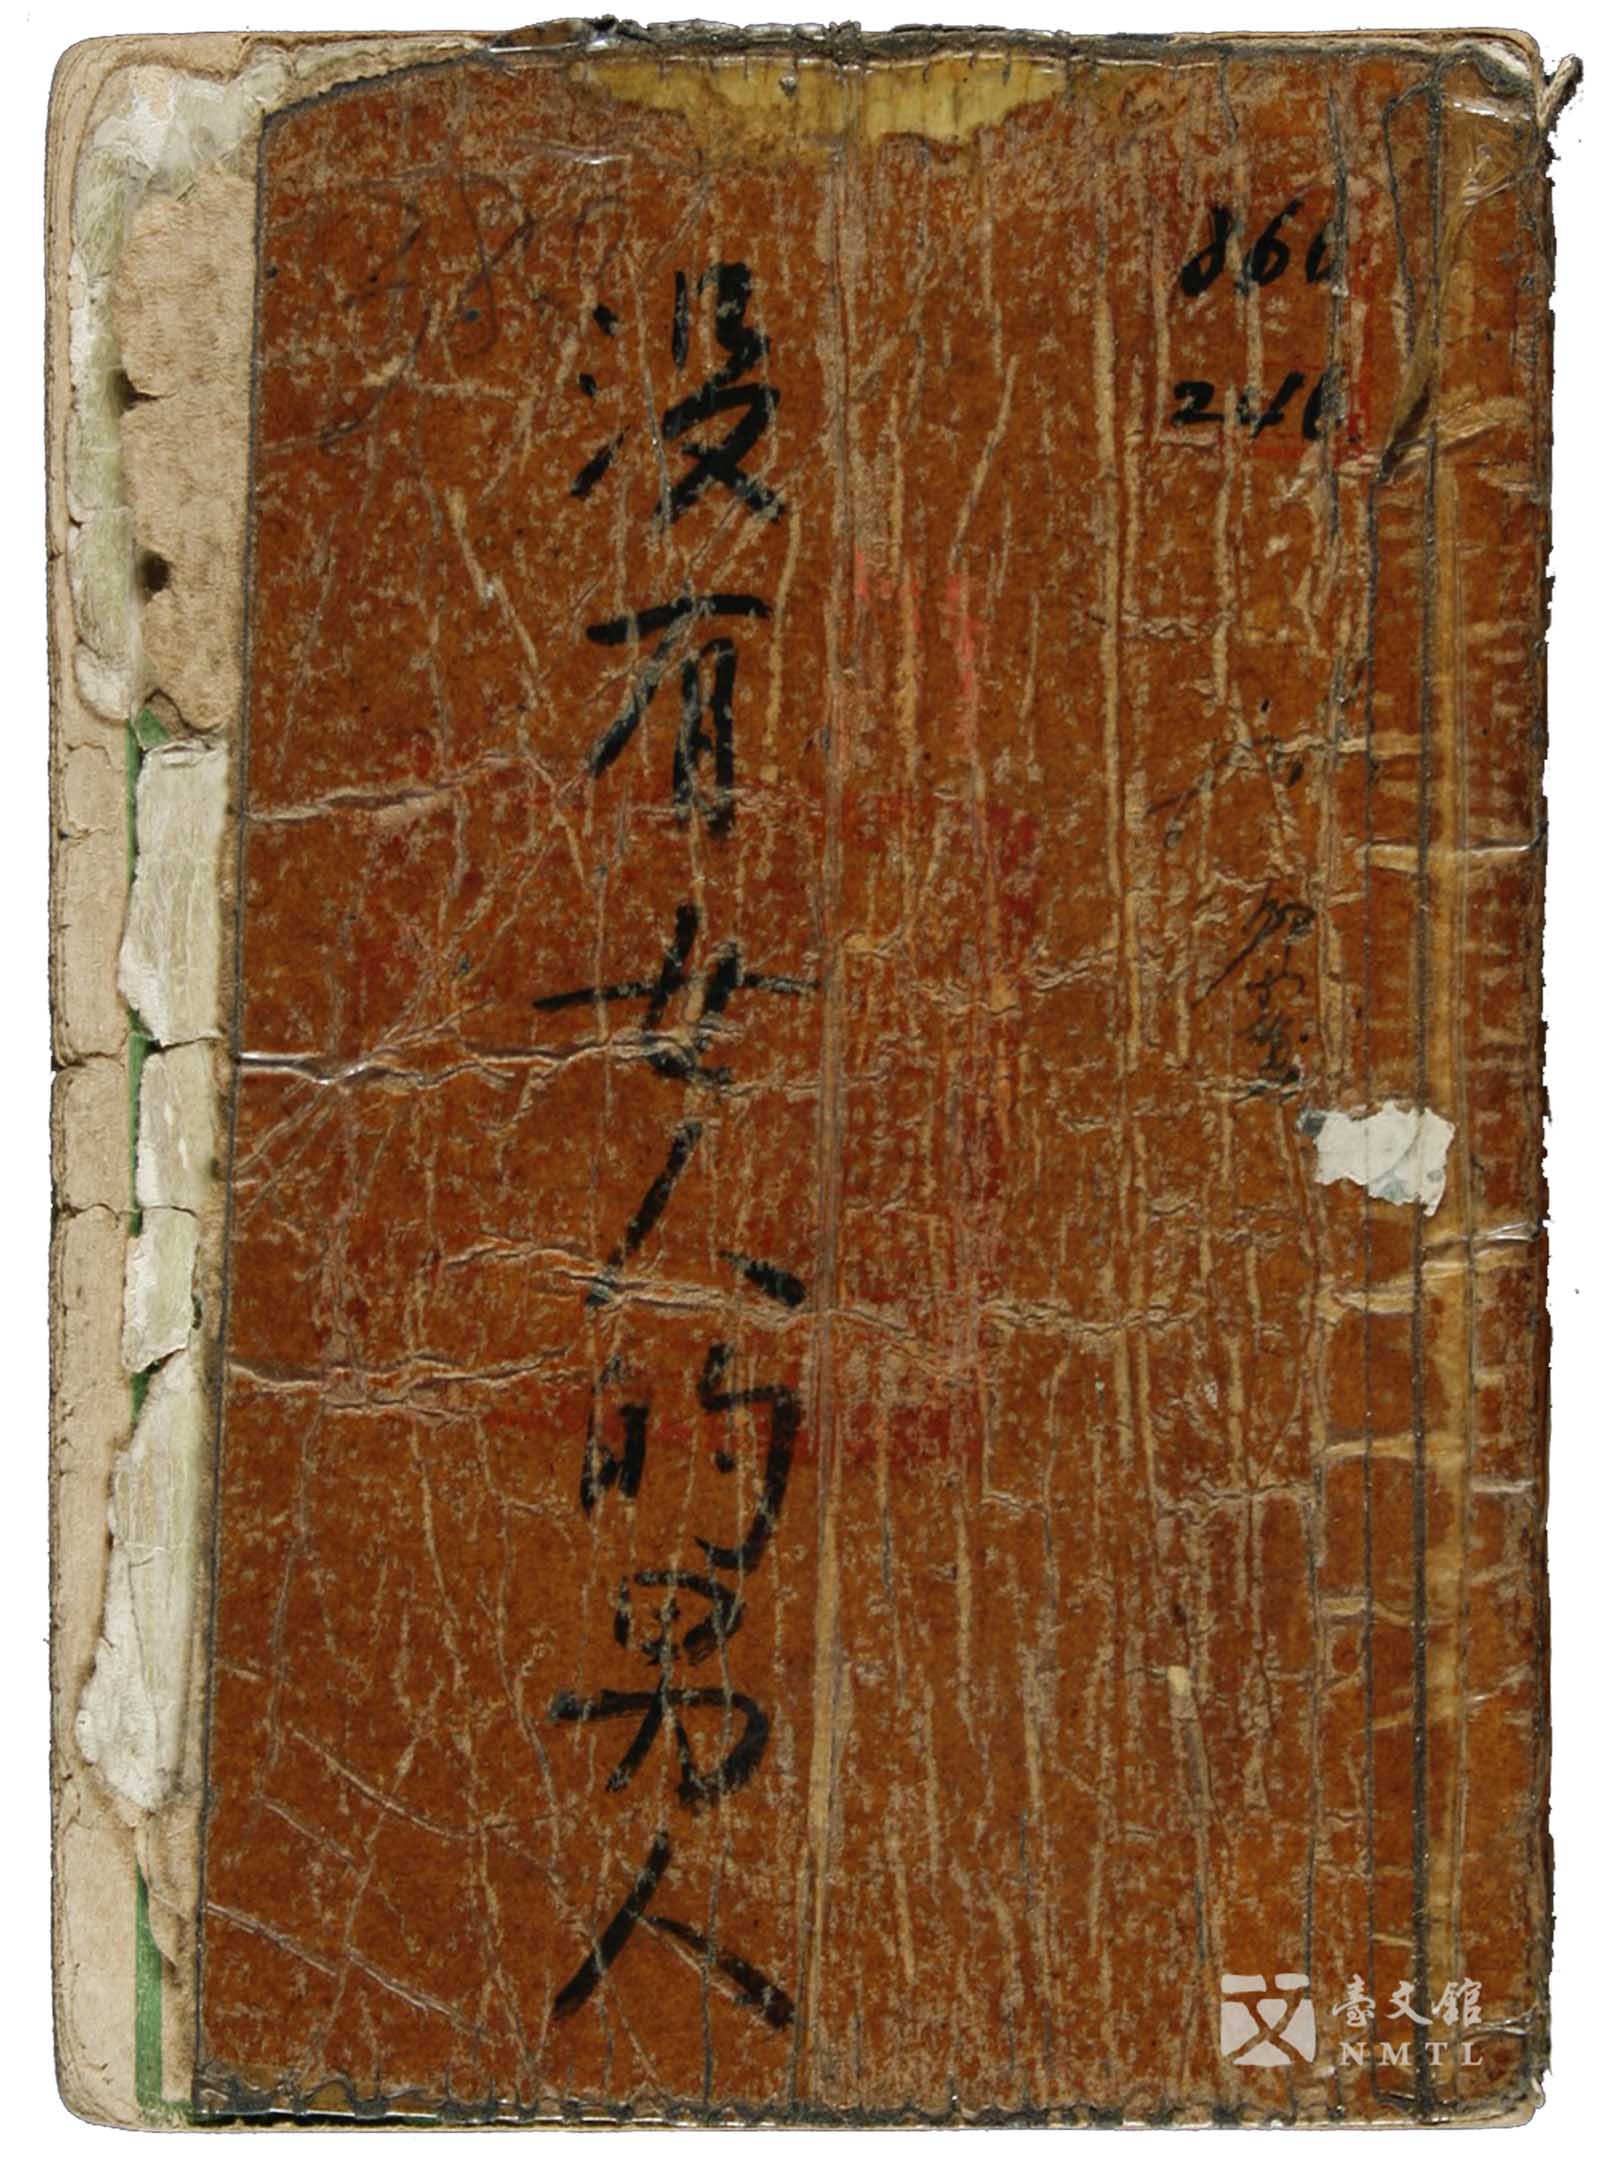 860
246
没有女人的男人
臺文館
NMTL